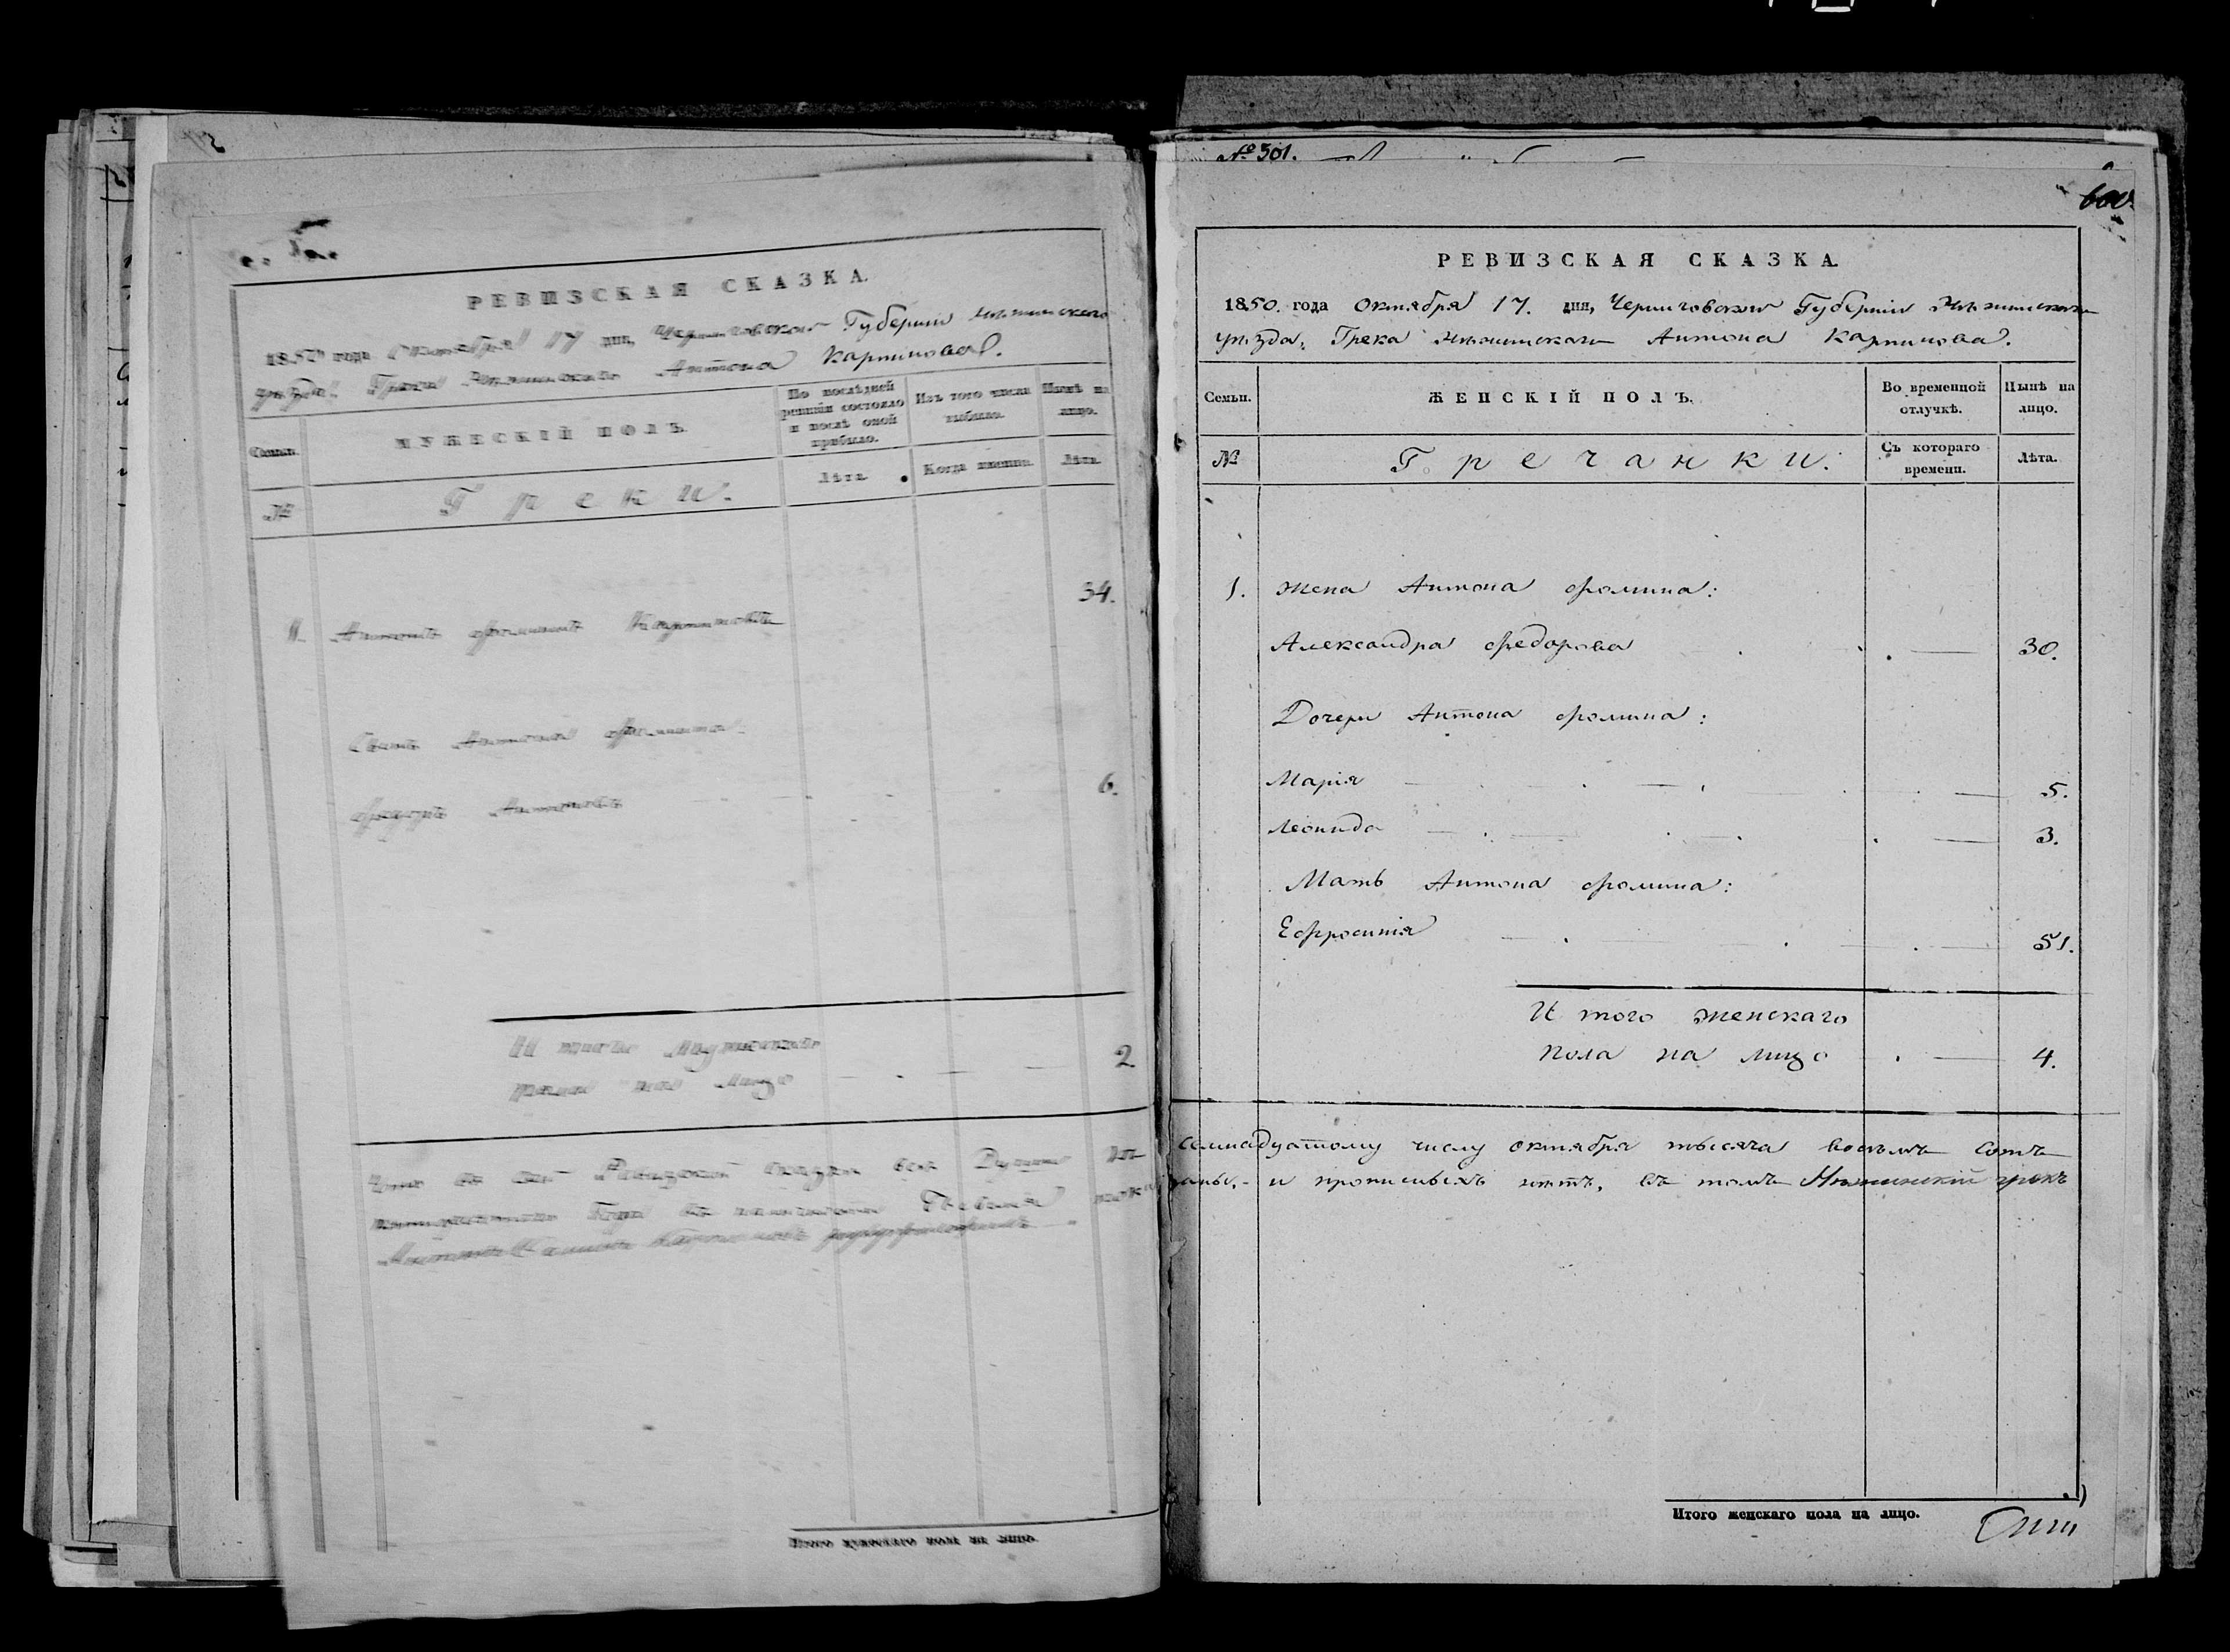 РЕВИЗСКАЯ СКАЗКА.
1850 года Октября 17 дня, Черниговской Губернiи Нѣжинскаго
уѣзда. Грека Нѣжинскаго Антона Карпинова.
Семьи.
МУЖЕСКIЙ ПОЛЪ.
По послѣдней ревизiи состояло и послѣ оной прибыло.
Изъ того числа выбыло.
Нынѣ на лицо.
№
Греки.
Лѣта.
Когда именно.
Лѣта.
1. Антонъ Фоминъ Карпиновъ 34.
Сынъ Антона Фомина:
Федоръ Антоновъ 6.
И того Мужескаго
пола на лицо 2.
Что въ сей Ревизской сказке всѣ Души
Итого мужескаго пола на лицо.
№ 301.
РЕВИЗСКАЯ СКАЗКА.
1850. года Октября 17. дня, Черниговской Губернiи Нѣжинскаго
уѣзда, Грека Нѣжинскаго Антона Карпинова.
Семьи.
ЖЕНСКIЙ ПОЛЪ.
Во временной отлучкѣ.
Нынѣ на лицо.
№
Гречанки.
Съ котораго времени.
Лѣта.
1. Жена Антона Фомина:
Александра Федорова 30.
Дочери Антона Фомина:
Марiя 5.
Леонида 3.
Мать Антона Фомина:
Ефросинiя 51.
И того женскаго
пола на лицо 4.
семнадцатому числу октября тысяча восемь сотъ
и прописныхъ нѣтъ, въ томъ Нѣжинскiй грекъ
Итого женскаго пола на лицо.